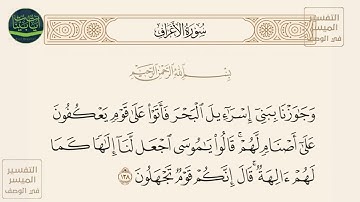 سُورَةُ الأَعْرَافِ
التفسير
الميسر
في الوصف
بِسْمِ اللَّهِ الرَّحْمَٰنِ الرَّحِيمِ
وَجَٰوَزْنَا بِبَنِىٓ إِسْرَٰٓءِيلَ ٱلْبَحْرَ فَأَتَوْا۟ عَلَىٰ قَوْمٍ يَعْكُفُونَ
عَلَىٰٓ أَصْنَامٍ لَّهُمْ ۚ قَالُوا۟ يَٰمُوسَى ٱجْعَل لَّنَآ إِلَٰهًا كَمَا
لَهُمْ ءَالِهَةٌ ۚ قَالَ إِنَّكُمْ قَوْمٌ تَجْهَلُونَ ١٣٨
التفسير
الميسر
في الوصف